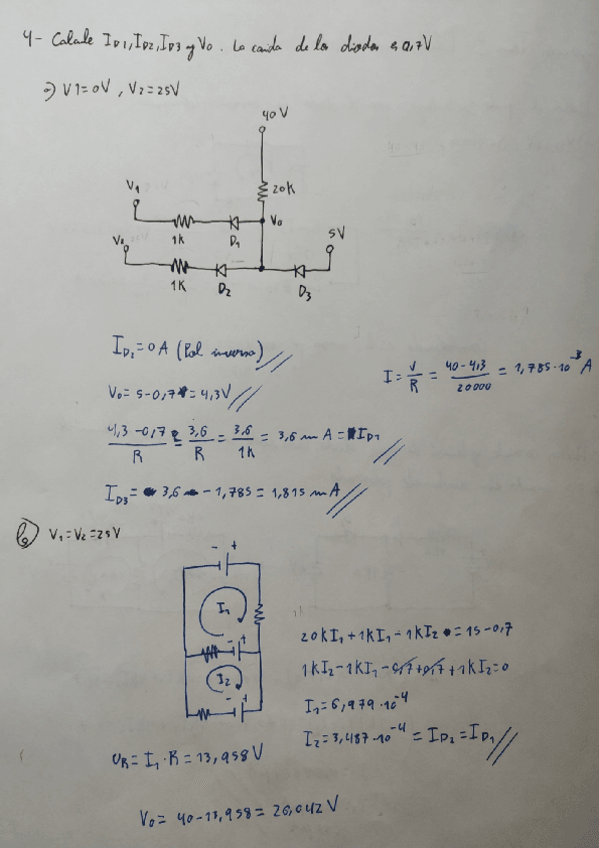 4- Calcule ID1, ID2, ID3 y Vo. La caida de los diodos es 0,7V
a) V1=0V, V2=25V
40V
20K
V1
Vo
1K
D1
5V
V2
1K
D2
D3
ID2=0A (Pol inversa)
I = V/R = 40-4,3/20000 = 1,785·10^-3 A
Vo= 5-0,7 = 4,3V
4,3-0,7/R = 3,6/R = 3,6/1K = 3,6 mA = ID1
ID3= 3,6 - 1,785 = 1,815 mA
b) V1=V2=25V
- +
I1
- +
I2
- +
20kI1+1kI1-1kI2=15-0,7
1kI2-1kI1-0,7+0,7+1kI2=0
I1=6,979·10^-4
I2=3,487·10^-4 = ID2=ID1
UR=I1·R=13,958V
Vo= 40-13,958=26,042V